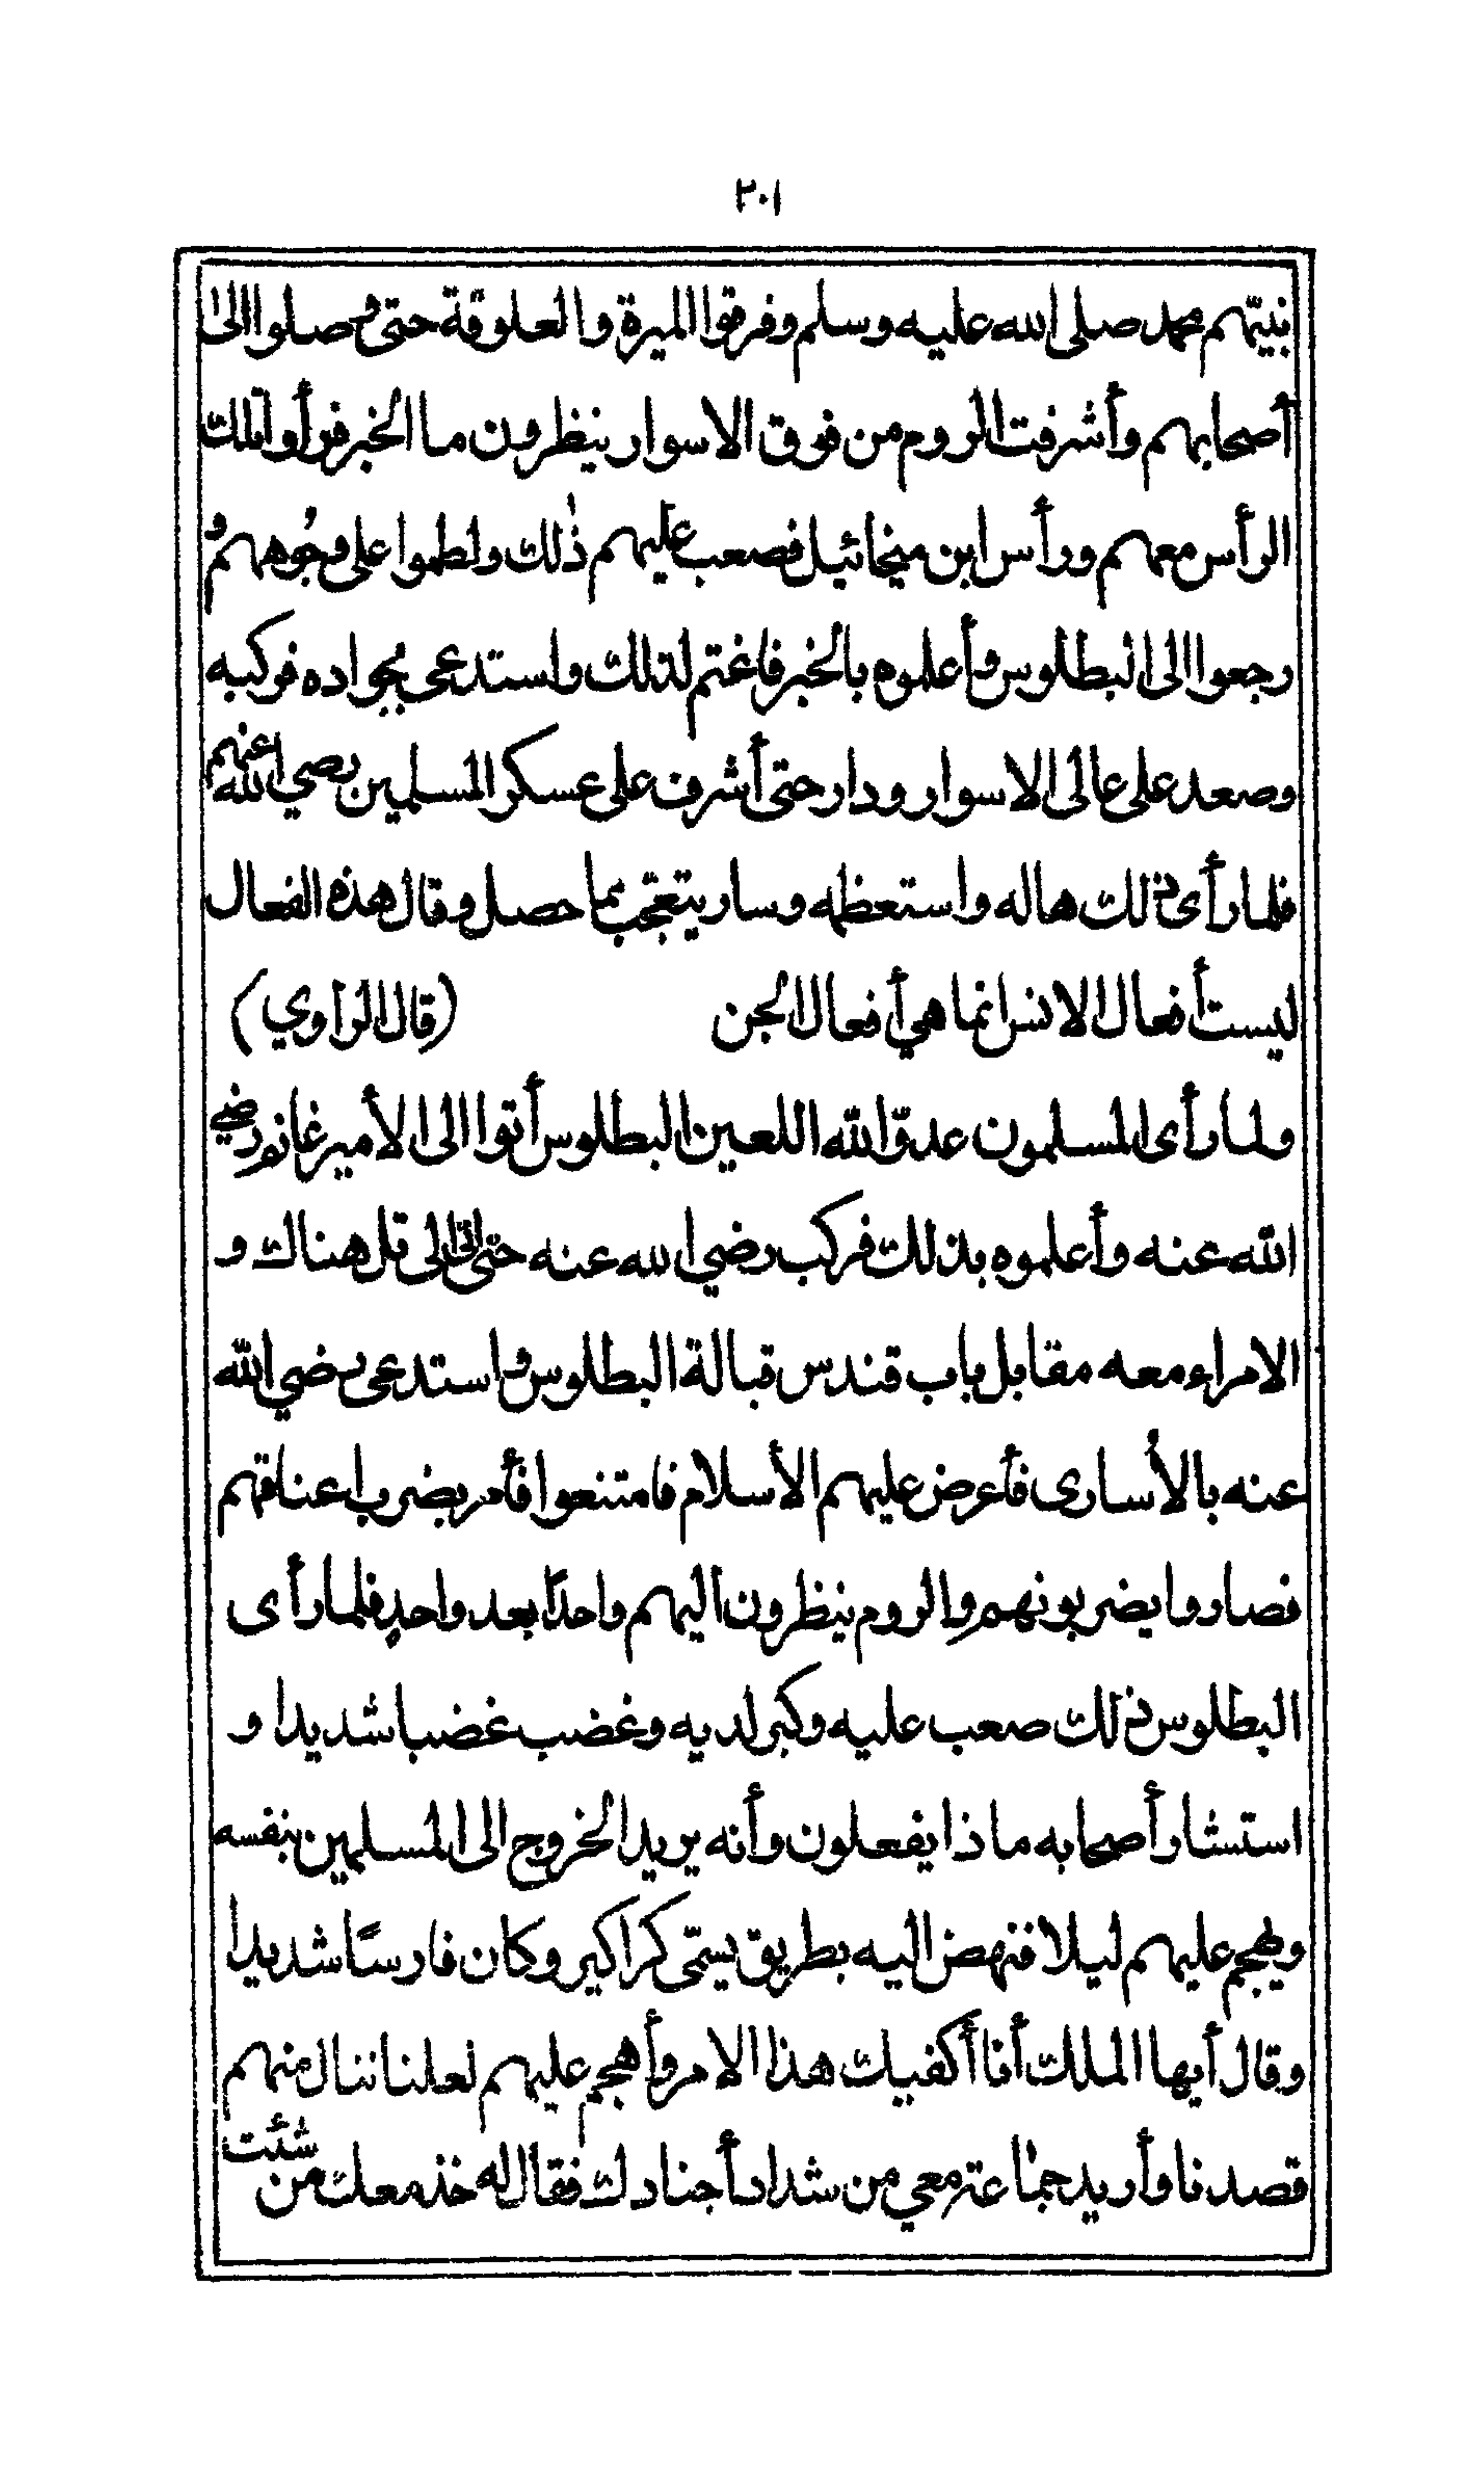 ٢٠١
نبيّهم محمد صلى الله عليه وسلم وفرقوا الميرة والعلوقة حتى وصلوا الى
أصحابهم وأشرفت الروم من فوق الاسوار ينظرون ما الخبر فرأوا تلك
الرأس معهم ورأس ابن ميخائيل فصعب عليهم ذٰلك ولطموا على وجُوههم و
رجعوا الى البطلوس وأعلموه بالخبر فاغتم لذلك واستدعى بجواده فركبه
وصعد على عالى الاسوار ودار حتى أشرف على عسكر المسلمين رضي الله عنهم
فلما رأى ذلك هاله واستعظمه وسار يتعجّب مما حصل وقال هذه الفعال
ليست أفعال الانس انما هي أفعال الجن (قال الراوي)
ولما رأى المسلمون عدوّ الله اللعين البطلوس أتوا الى الأمير غانم رضي
الله عنه وأعلموه بذلك فركب رضي الله عنه حتى اتى الى تل هناك و
الامراء معه مقابل باب قندس قبالة البطلوس واستدعى رضي الله
عنه بالأسارى فأعرض عليهم الأسلام فامتنعوا فأمر بضرب اعناقهم
فصاروا يضربونهم والروم ينظرون اليهم واحدًا بعد واحدٍ فلما رأى
البطلوس ذلك صعب عليه وكبر لديه وغضب غضبا شديدا و
استشار أصحابه ماذا يفعلون وأنه يريد الخروج الى المسلمين بنفسه
ويهجم عليهم ليلا فنهض اليه بطريق يسمّى كراكير وكان فارسًا شديدا
وقال أيها الملك أنا أكفيك هذا الامر وأهجم عليهم لعلنا ننال منهم
قصدنا وأريد جماعة معي من شداد أجنادك فقال له خذ معك من شئت